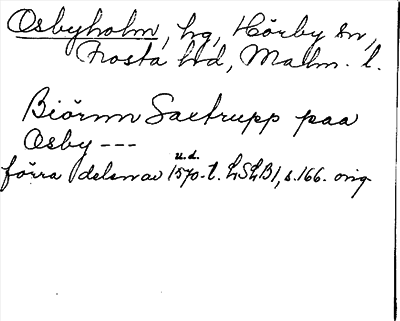 Osbyholm, hg, Hörby sn,
Frosta hd, Malm. l.
Biörnn Saxtrupp paa
Osby ---
u.d.
förra delen av 1570-t. LSLB1, s.166. orig